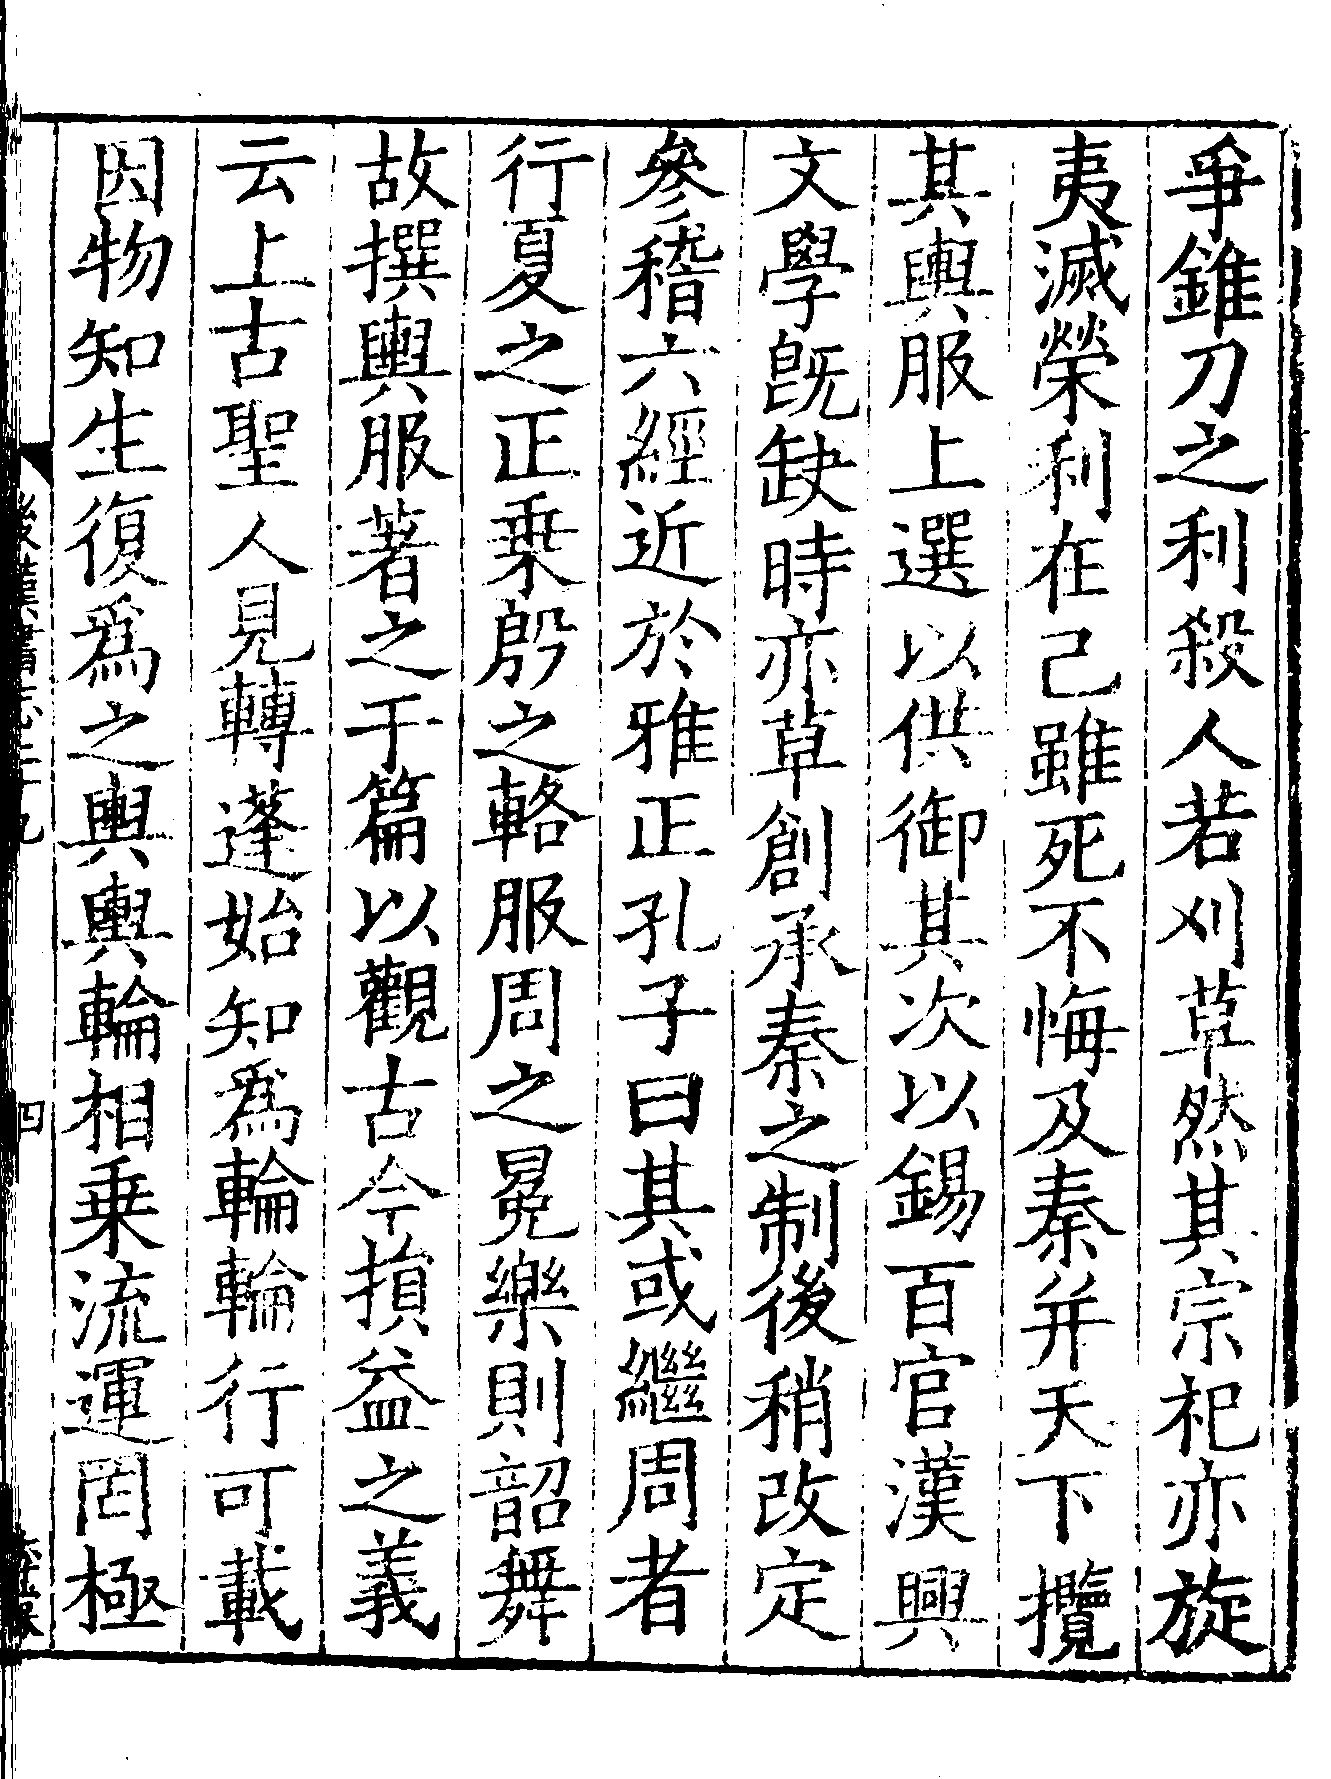 爭錐刀之利殺人若刈草然其宗祀亦旋
夷滅榮利在己雖死不悔及秦并天下攬
其輿服上選以供御其次以錫百官漢興
文學既缺時亦草創承秦之制後稍改定
參稽六經近於雅正孔子曰其或繼周者
行夏之正乗殷之輅服周之冕樂則韶舞
故撰輿服著之于篇以觀古今損益之義
云上古聖人見轉蓬始知爲輪輪行可載
因物知生復爲之輿輿輪相乗流運罔極
後漢書志二十九
四